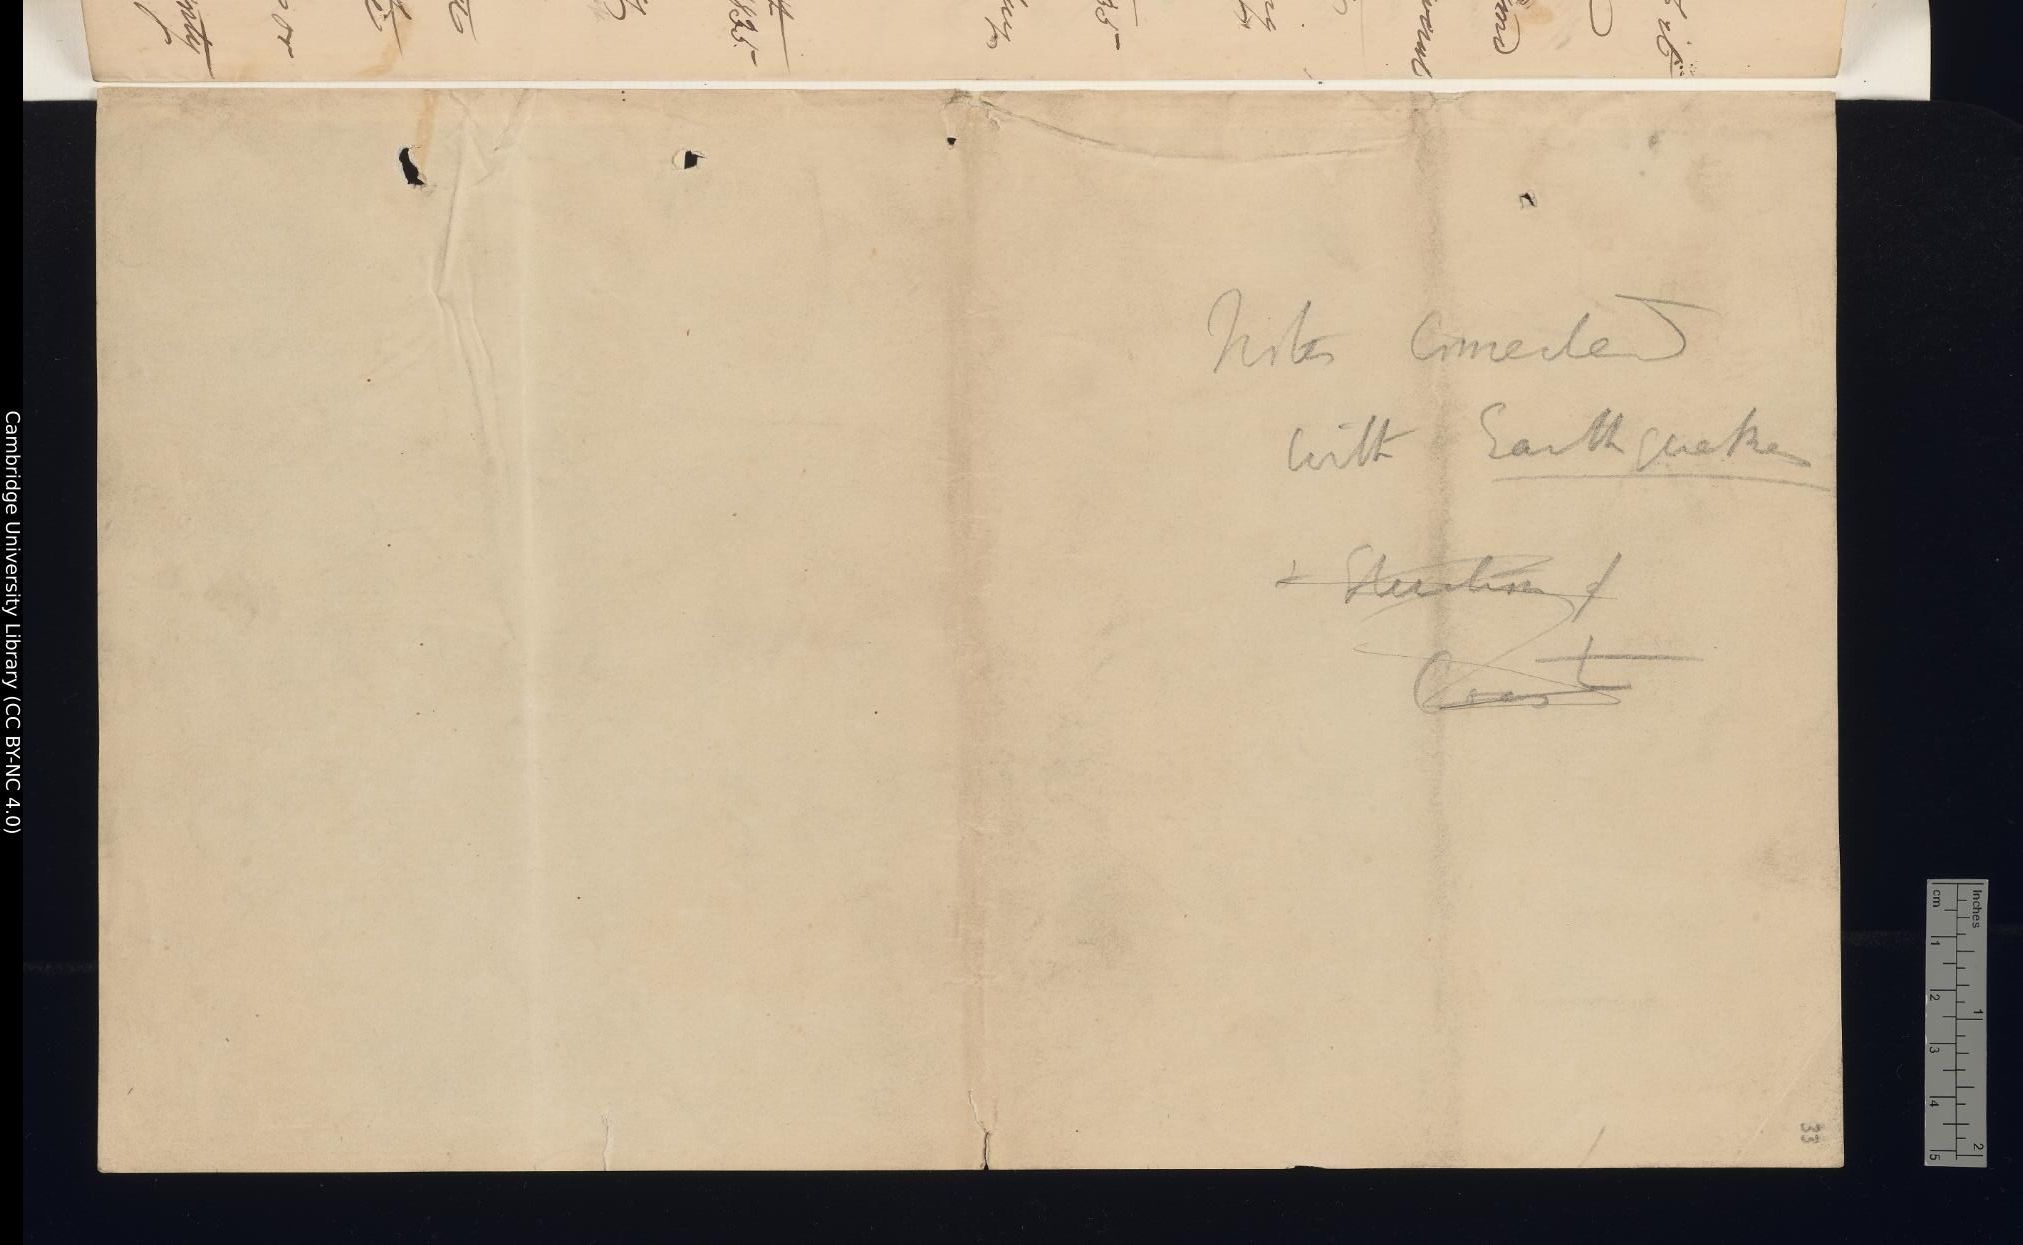 Notes Connected
with Earthquakes
+ Elevation of
Coast
33
it
or
1835-
35-
Inches
cm
1
2
3
4
5
1
2
Cambridge University Library (CC BY-NC 4.0)